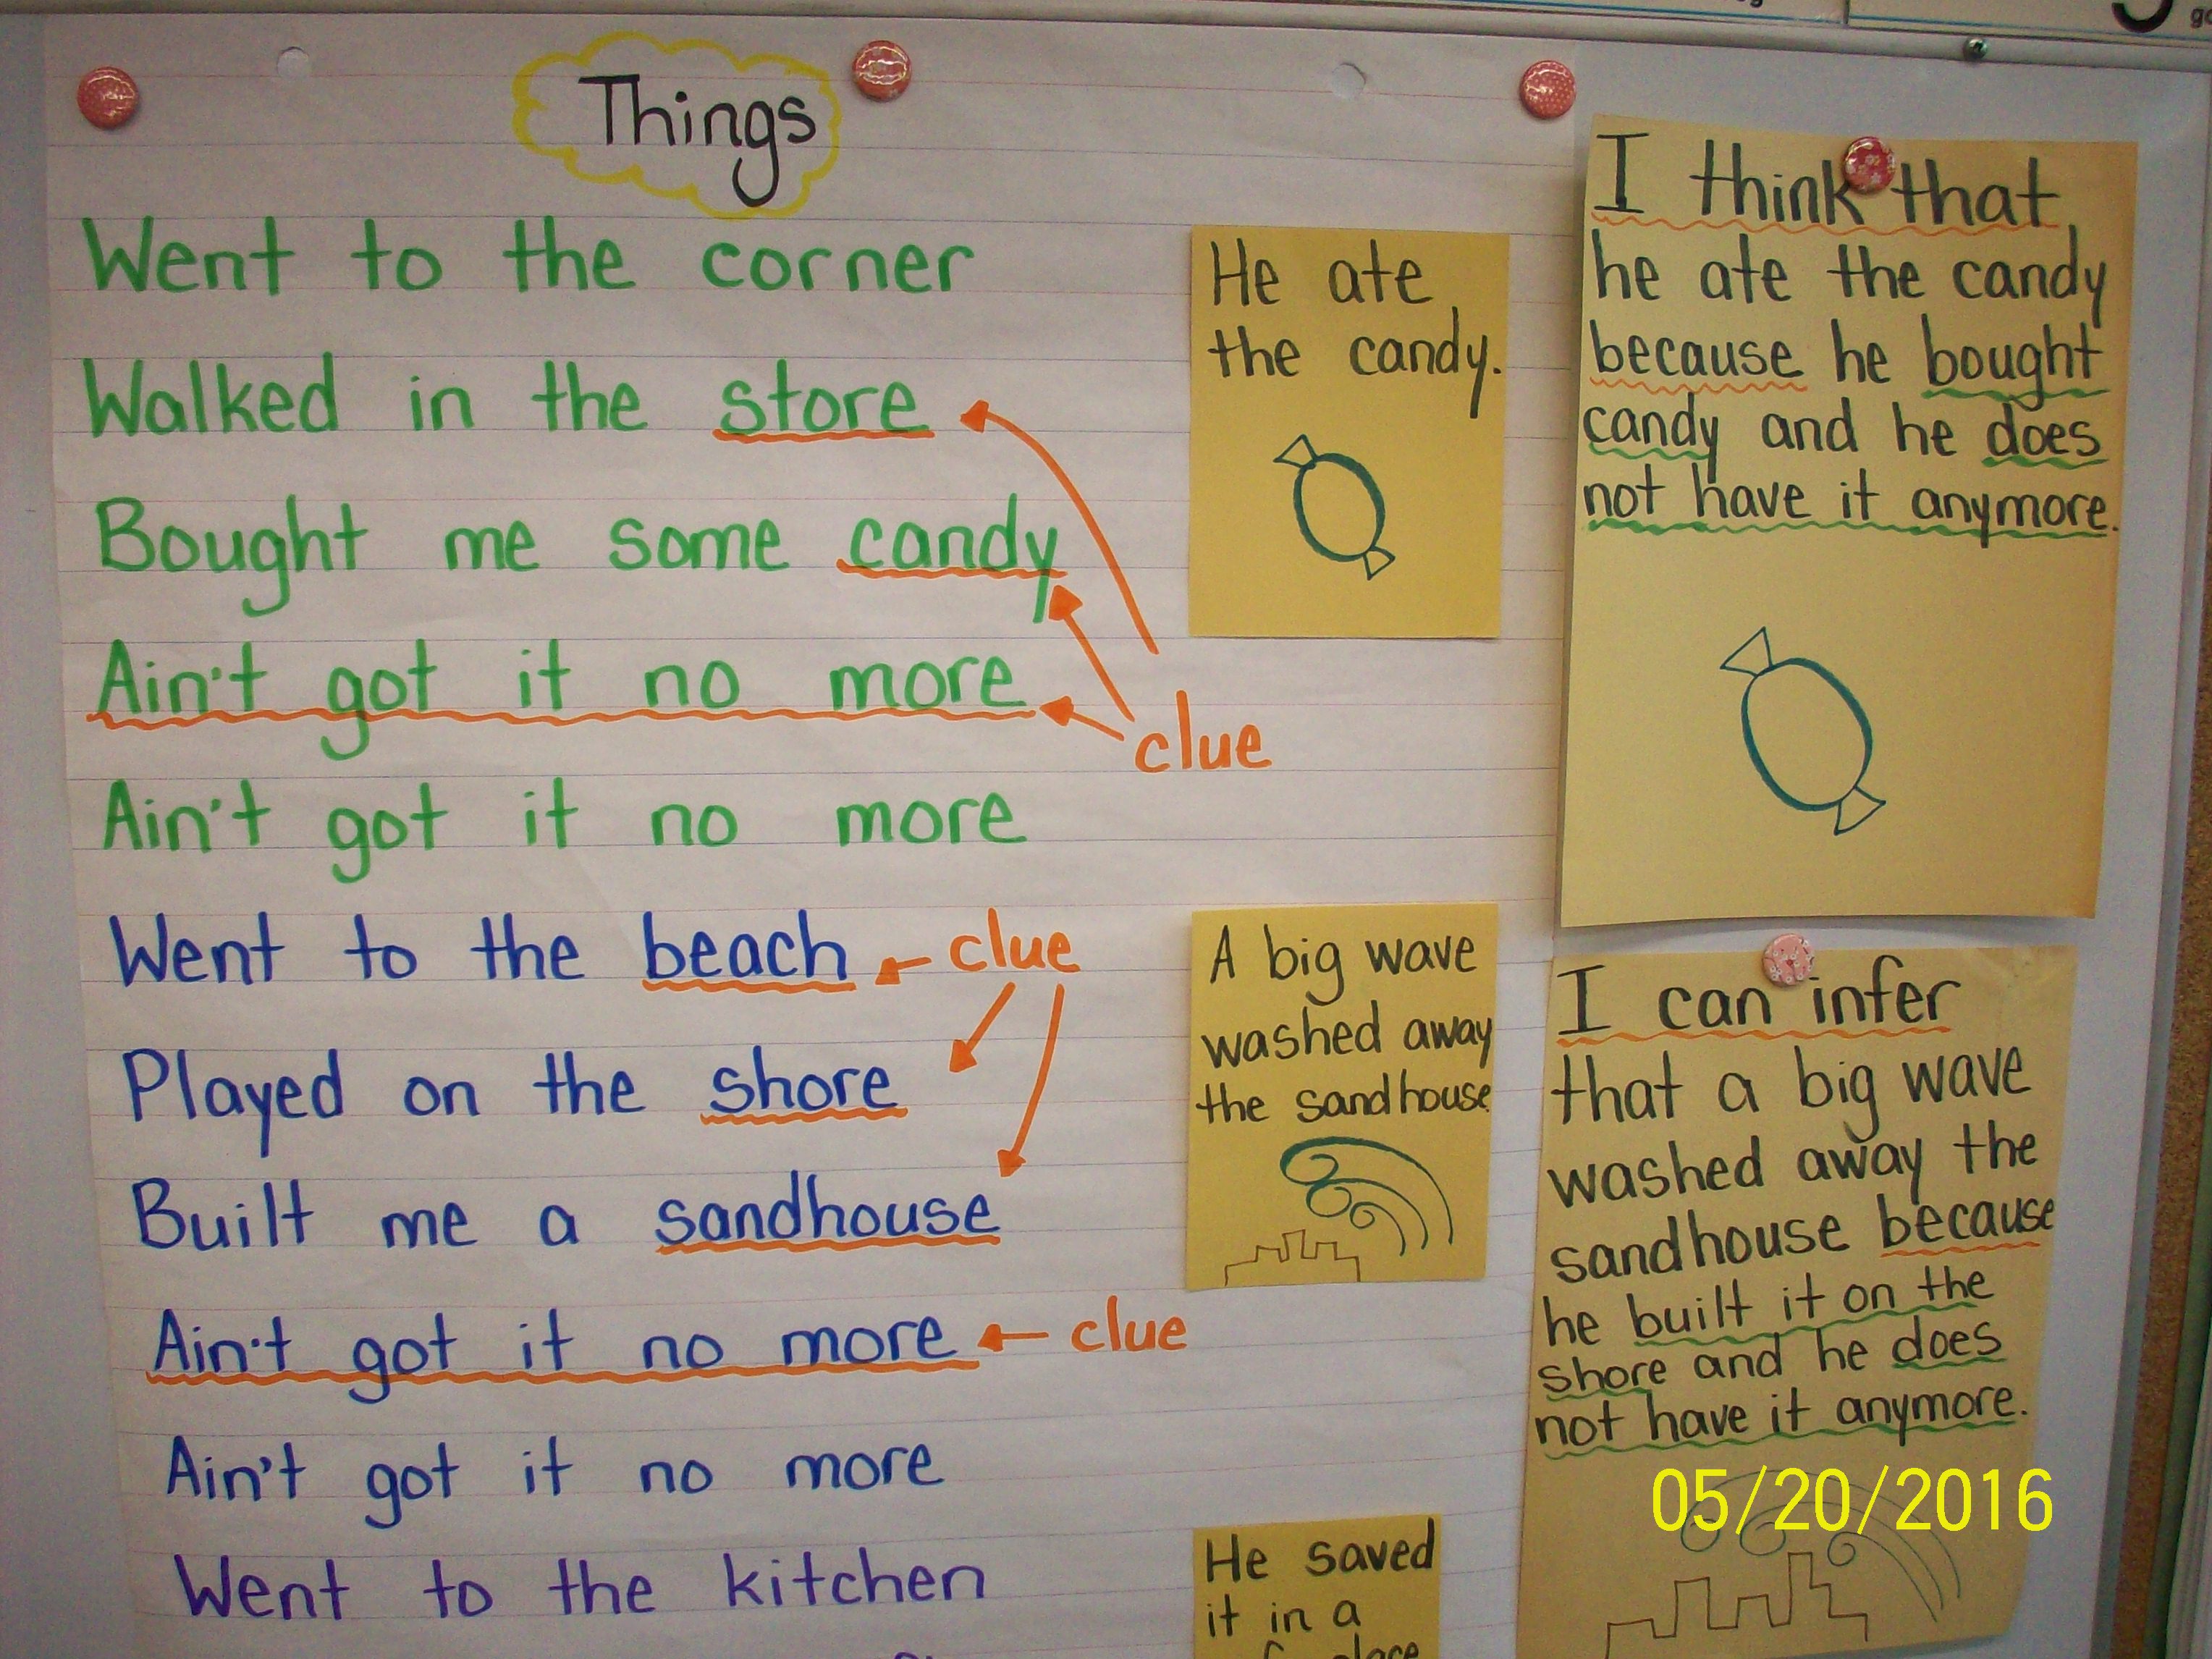 Things
Went to the corner
Walked in the store
Bought me some candy
Ain't got it no more
clue
Ain't got it no more
Went to the beach
clue
Played on the shore
Built me a sandhouse
Ain't got it no more
clue
Ain't got it no more
Went to the kitchen
He ate
the candy.
A big wave
washed away
the sandhouse
He saved
it in a
place
I think that
he ate the candy
because he bought
candy and he does
not have it anymore.
I can infer
that a big wave
washed away the
sandhouse because
he built it on the
shore and he does
not have it anymore.
05/20/2016